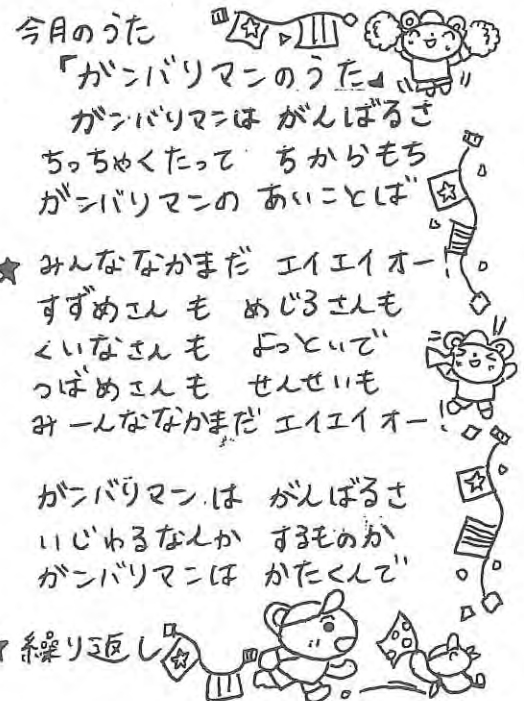 今月のうた
「ガンバリマンのうた」
ガンバリマンは がんばるさ
ちっちゃくたって ちからもち
ガンバリマンの あいことば
★ みんななかまだ エイエイオー!
すずめさん も めじろさんも
くいなさんも よっといで
つばめさんも せんせいも
みーんななかまだ エイエイオー!
ガンバリマンは がんばるさ
いじわるなんか するものか
ガンバリマンは かたくんで
★繰り返し